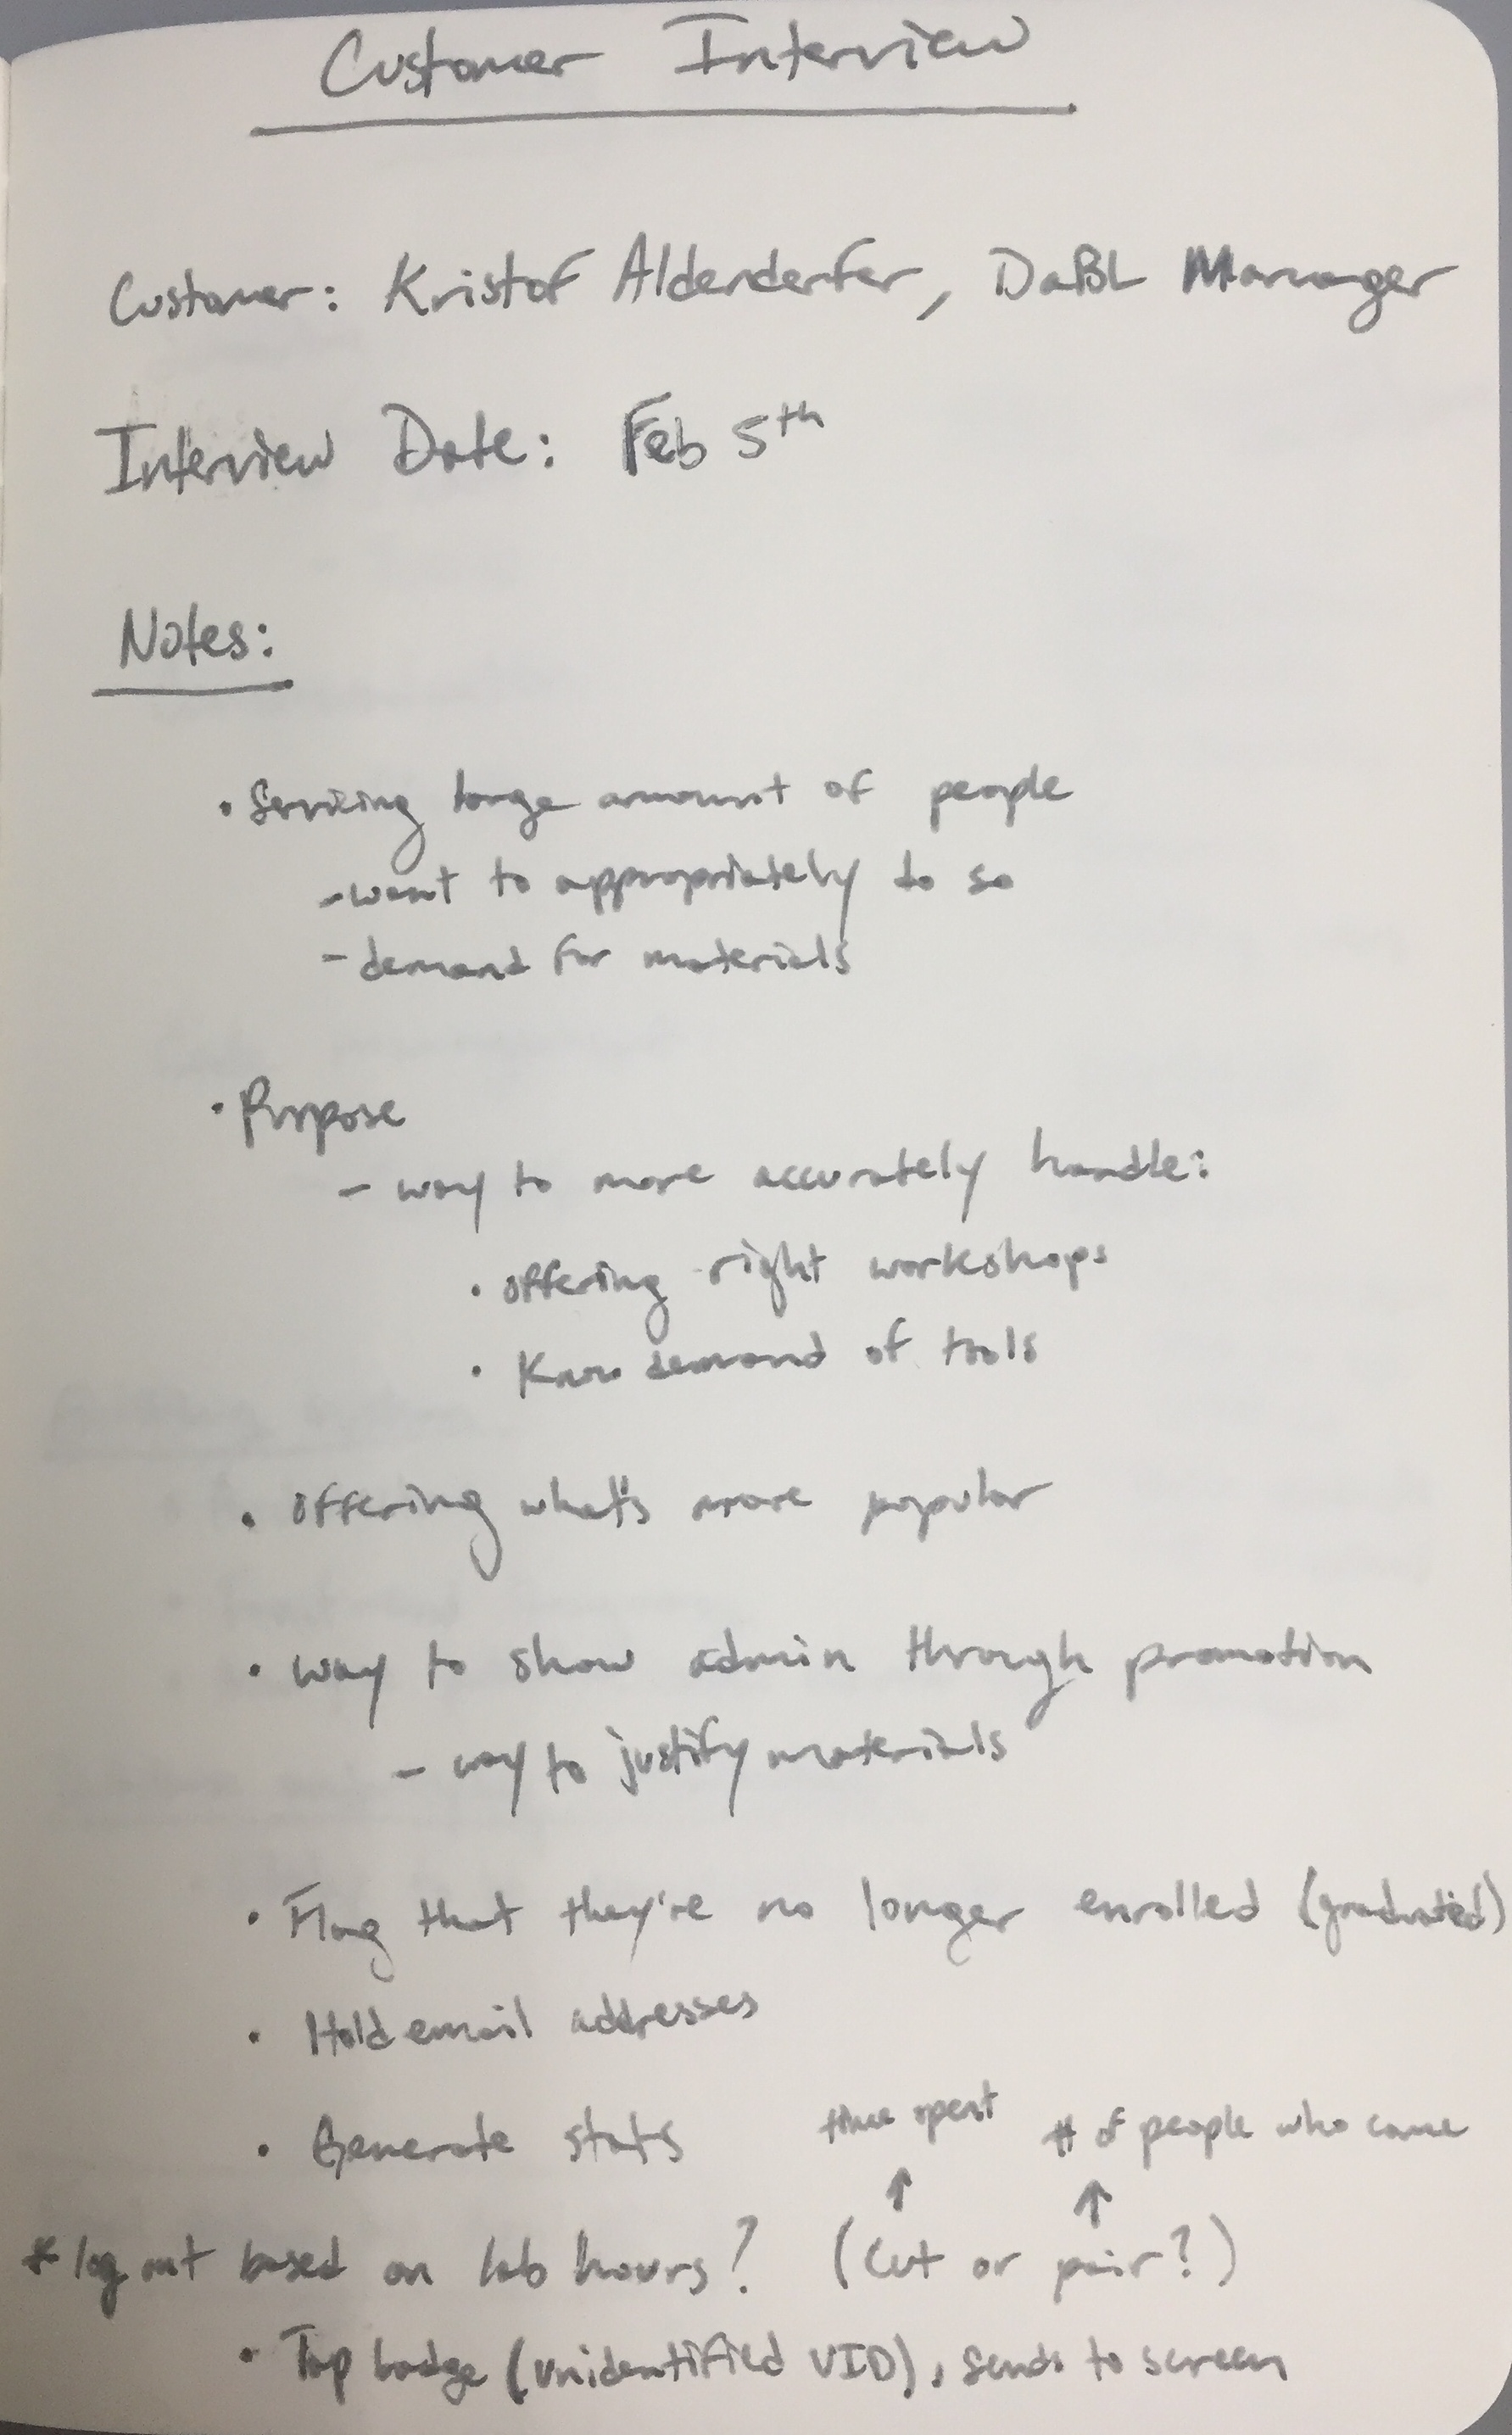 Customer Interview
Customer: Kristof Aldenderfer, DaBL Manager
Interview Date: Feb 5th
Notes:
• Servicing large amount of people
- want to appropriately do so
- demand for materials
• Purpose
- way to more accurately handle:
• offering right workshops
• Know demand of tools
• offering what's more popular
• way to show admin through promotion
- way to justify materials
• Flag that they're no longer enrolled (graduated)
• Hold email addresses
• Generate stats
time spent # of people who came
↑ ↑
* log out based on lab hours? (cut or pair?)
• Tap badge (unidentified VID), sends to screen